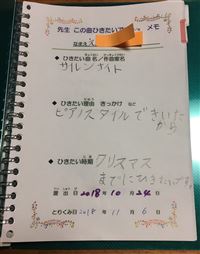 先生 この曲ひきたいです メモ
なまえ
◆ひきたい曲名/作曲家名
サイレンナイト
◆ひきたい理由 きっかけ など
ピアノスタイルできいた
から
◆ひきたい時期 クリスマス
までにひきたいです。
提出日 2018年 10月 24日
とりくみ日 2018年 11月 6日